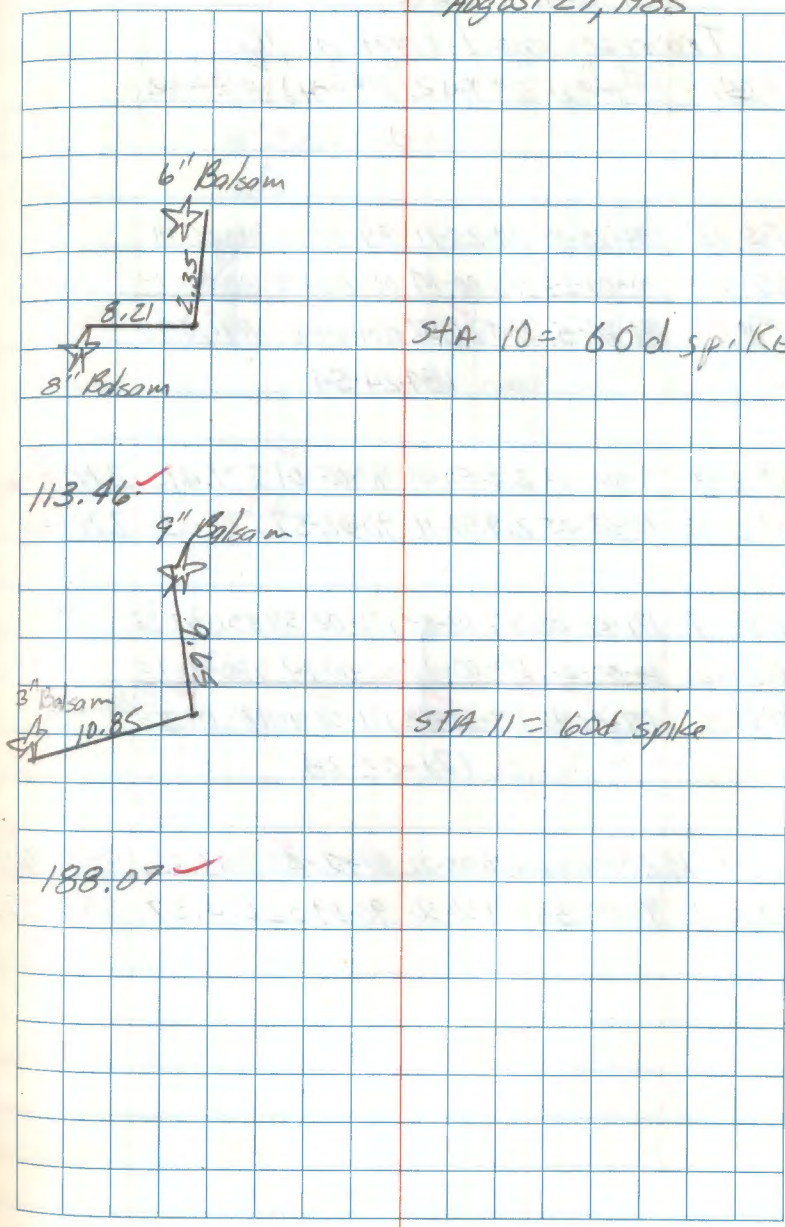 August 27, 1985
6" Balsam
2.35
8.21
STA 10 = 60d spike
8" Balsam
113.46 ✓
9" Balsam
9.65
3" Balsam
10.85
STA 11 = 60d spike
188.07 ✓